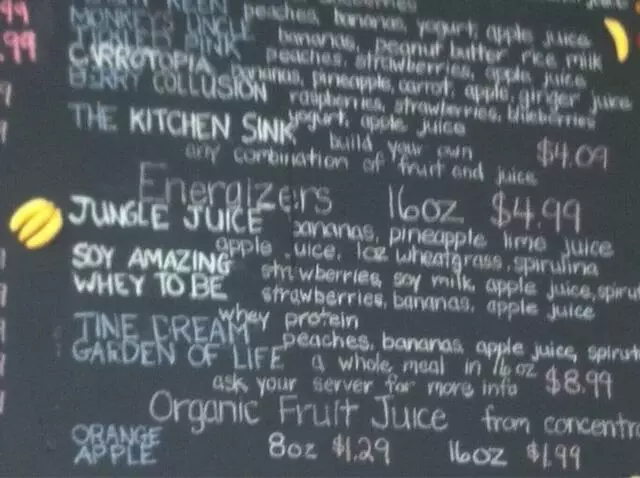 99 KEEN peaches, bananas, yogurt, apple juice
.99 MONKEY'S UNCLE bananas, peanut butter, rice milk
TICKLED PINK peaches, strawberries, apple juice
CARROTOPIA bananas, pineapple, carrot, apple, ginger juice
BERRY COLLUSION raspberries, strawberries, blueberries
yogurt, apple juice
THE KITCHEN SINK build your own $4.09
any combination of fruit and juice
Energizers 16oz $4.99
JUNGLE JUICE bananas, pineapple lime juice
apple juice, 1oz wheatgrass, spirulina
SOY AMAZING strawberries, soy milk, apple juice, spiru
WHEY TO BE strawberries, bananas, apple juice
whey protein
TINE CREAM peaches, bananas, apple juice, spirut
GARDEN OF LIFE a whole meal in 16 oz $8.99
ask your server for more info
Organic Fruit Juice from concentra
ORANGE
APPLE 8oz $1.29 16oz $1.99